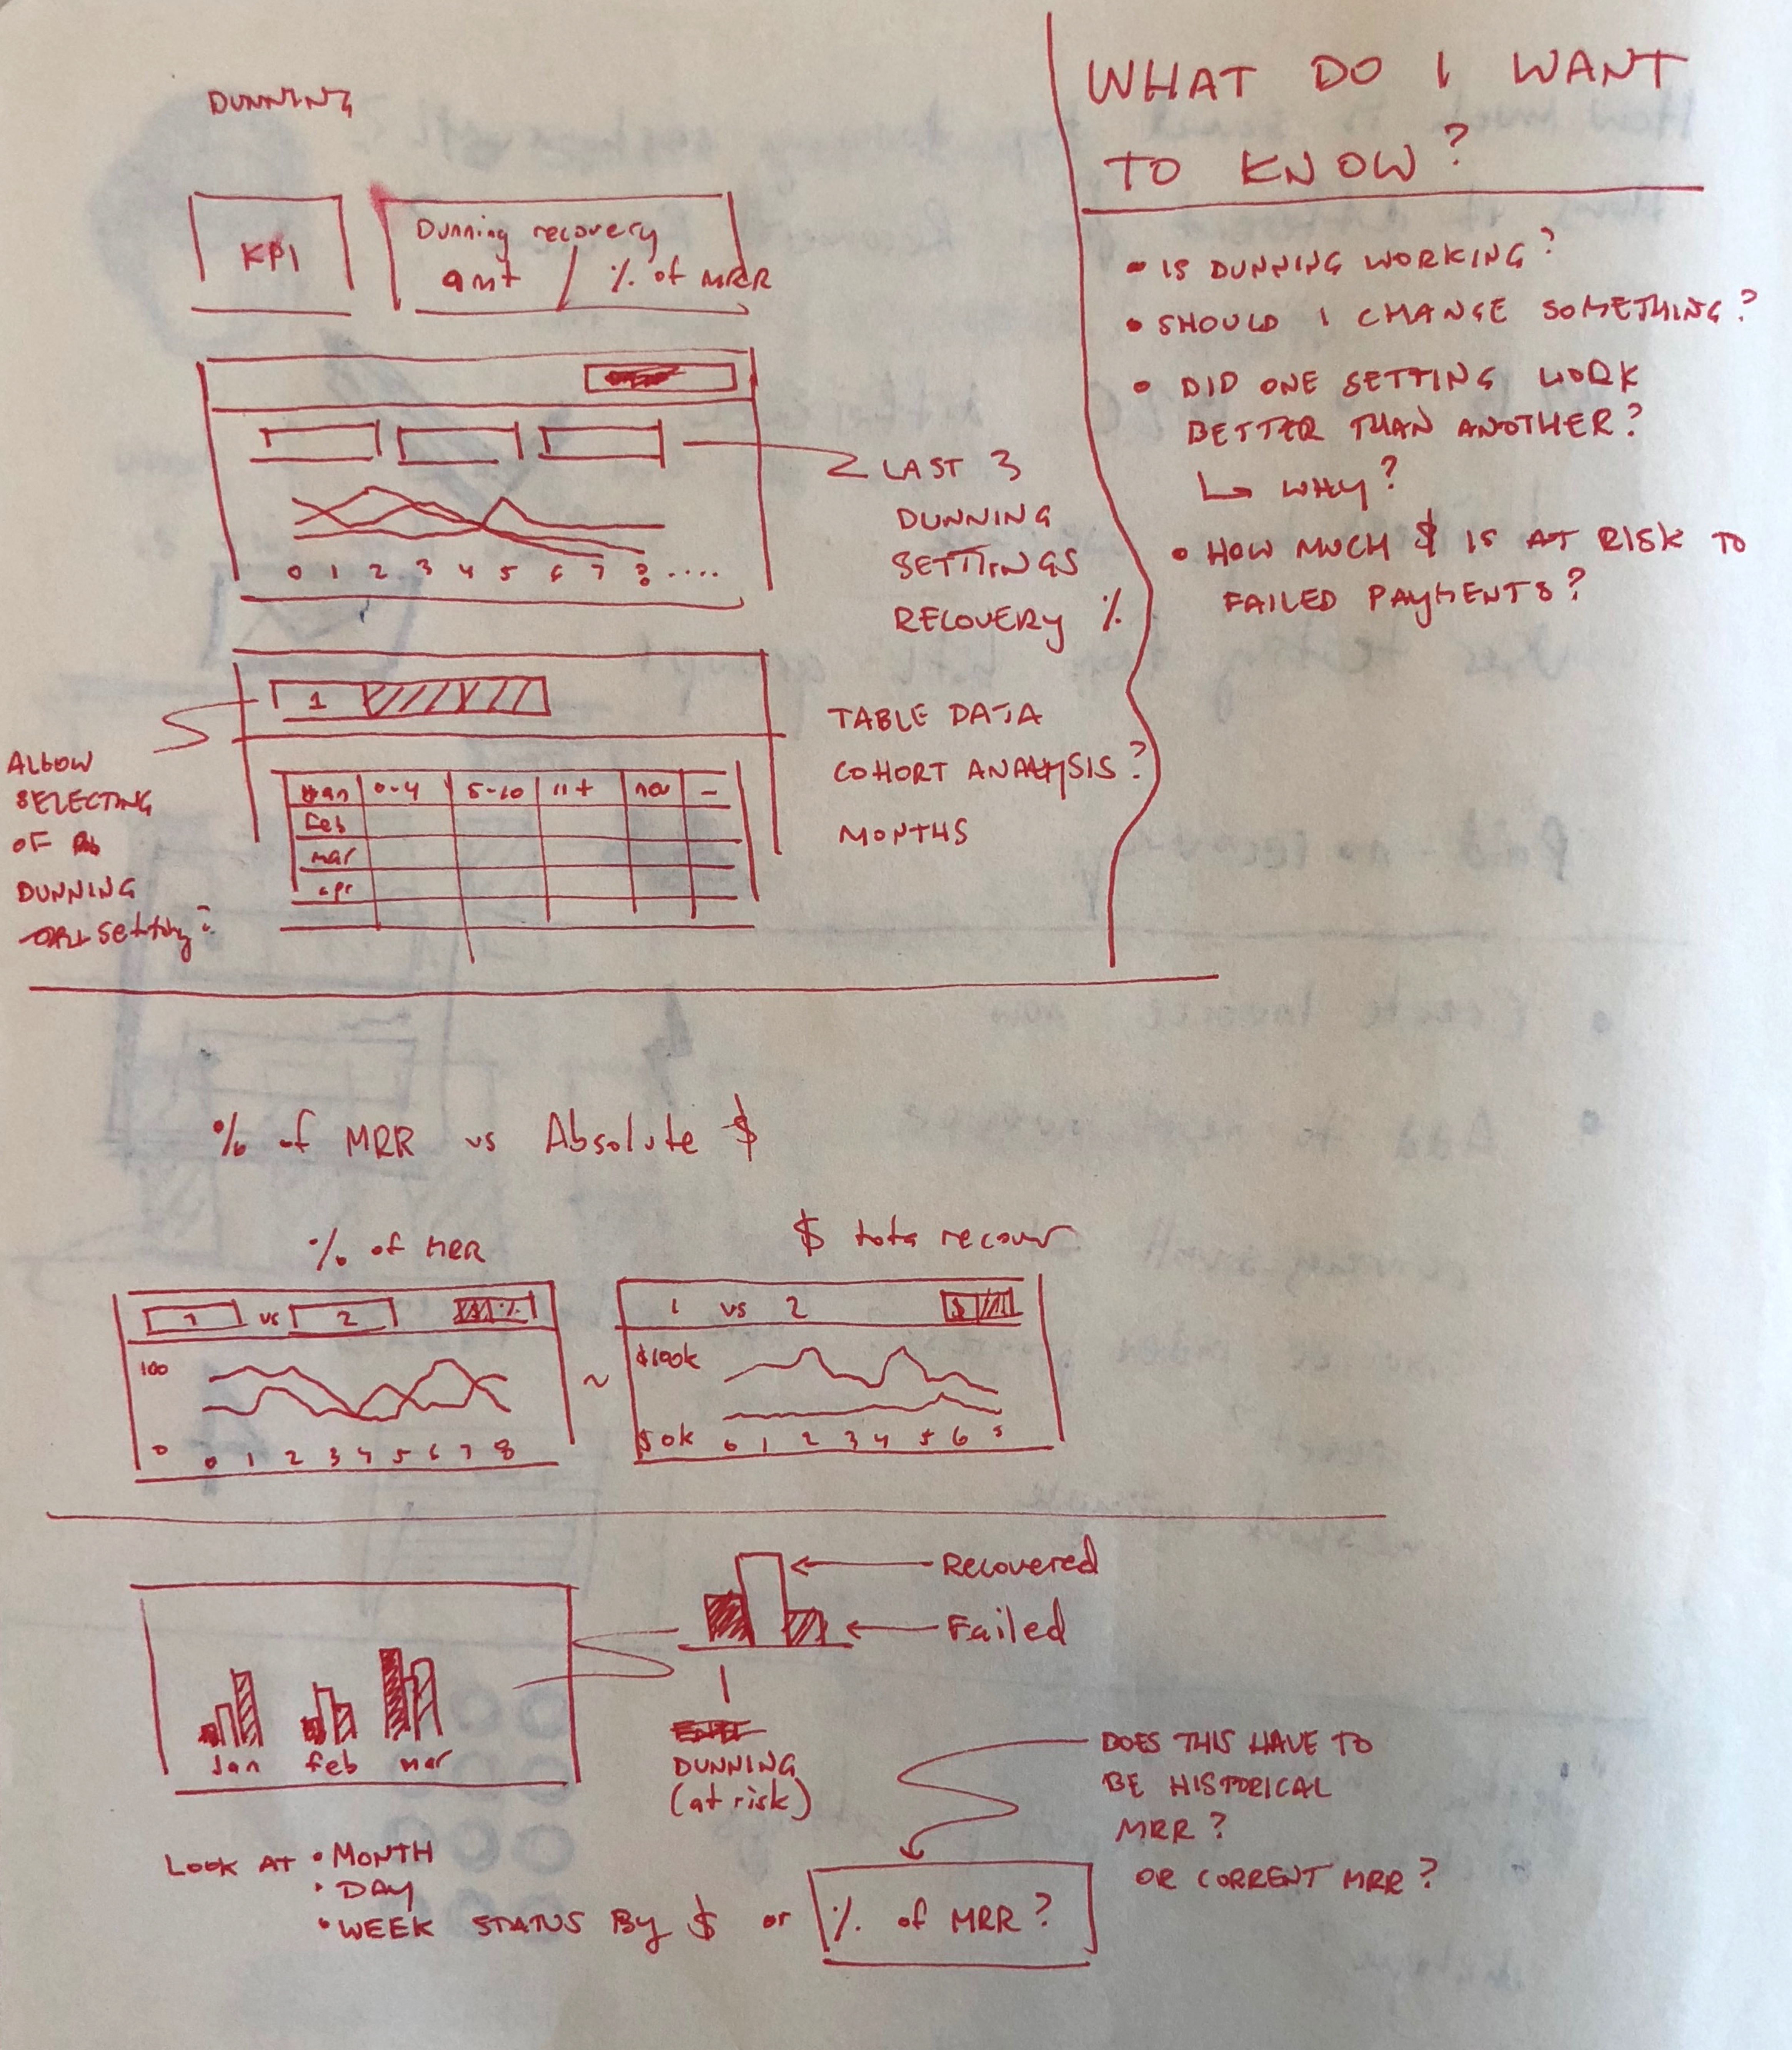 DUNNING
KPI
Dunning recovery
amt / % of MRR
LAST 3
DUNNING
SETTINGS
RECOVERY %
0 1 2 3 4 5 6 7 8 ....
1
ALLOW
SELECTING
OF
DUNNING
setting?
Jan 0-4 5-10 11+ –
Feb
mar
apr
TABLE DATA
COHORT ANALYSIS?
MONTHS
WHAT DO I WANT
TO KNOW?
• IS DUNNING WORKING?
• SHOULD I CHANGE SOMETHING?
• DID ONE SETTING WORK
BETTER THAN ANOTHER?
↳ WHY?
• HOW MUCH $ IS AT RISK TO
FAILED PAYMENTS?
% of MRR vs Absolute $
% of MRR
1 vs 2 $ %
100
0
0 1 2 3 4 5 6 7 8
~
$ tota recover
1 vs 2 $
$100k
$0k
0 1 2 3 4 5 6
Recovered
Failed
DUNNING
(at risk)
Jan feb mar
LOOK AT • MONTH
• DAY
• WEEK STATUS BY $ or % of MRR?
DOES THIS HAVE TO
BE HISTORICAL
MRR?
OR CURRENT MRR?